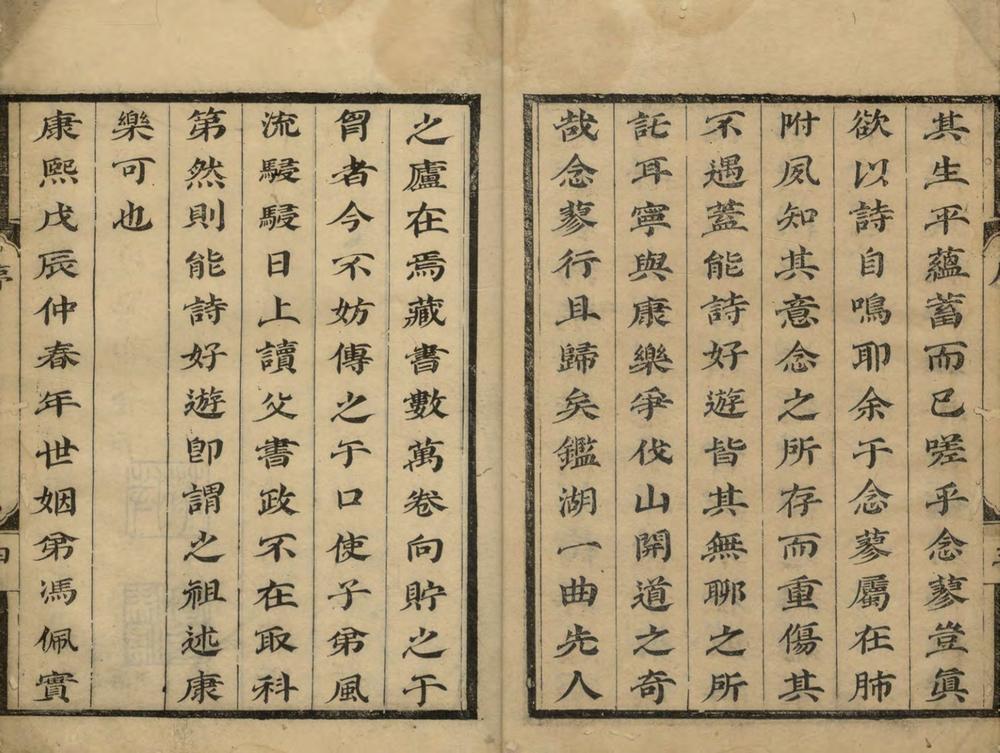 其生平蘊蓄而已嗟乎念蓼豈眞
欲以詩自鳴耶余于念蓼屬在肺
附夙知其意念之所存而重傷其
不遇蓋能詩好遊皆其無聊之所
託耳寧與康樂爭伐山開道之奇
哉念蓼行且歸矣鑑湖一曲先人
之廬在焉藏書數萬卷向貯之于
胷者今不妨傳之于口使子弟風
流駸駸日上讀父書政不在取科
第然則能詩好遊卽謂之祖述康
樂可也
康熙戊辰仲春年世姻弟馮佩實